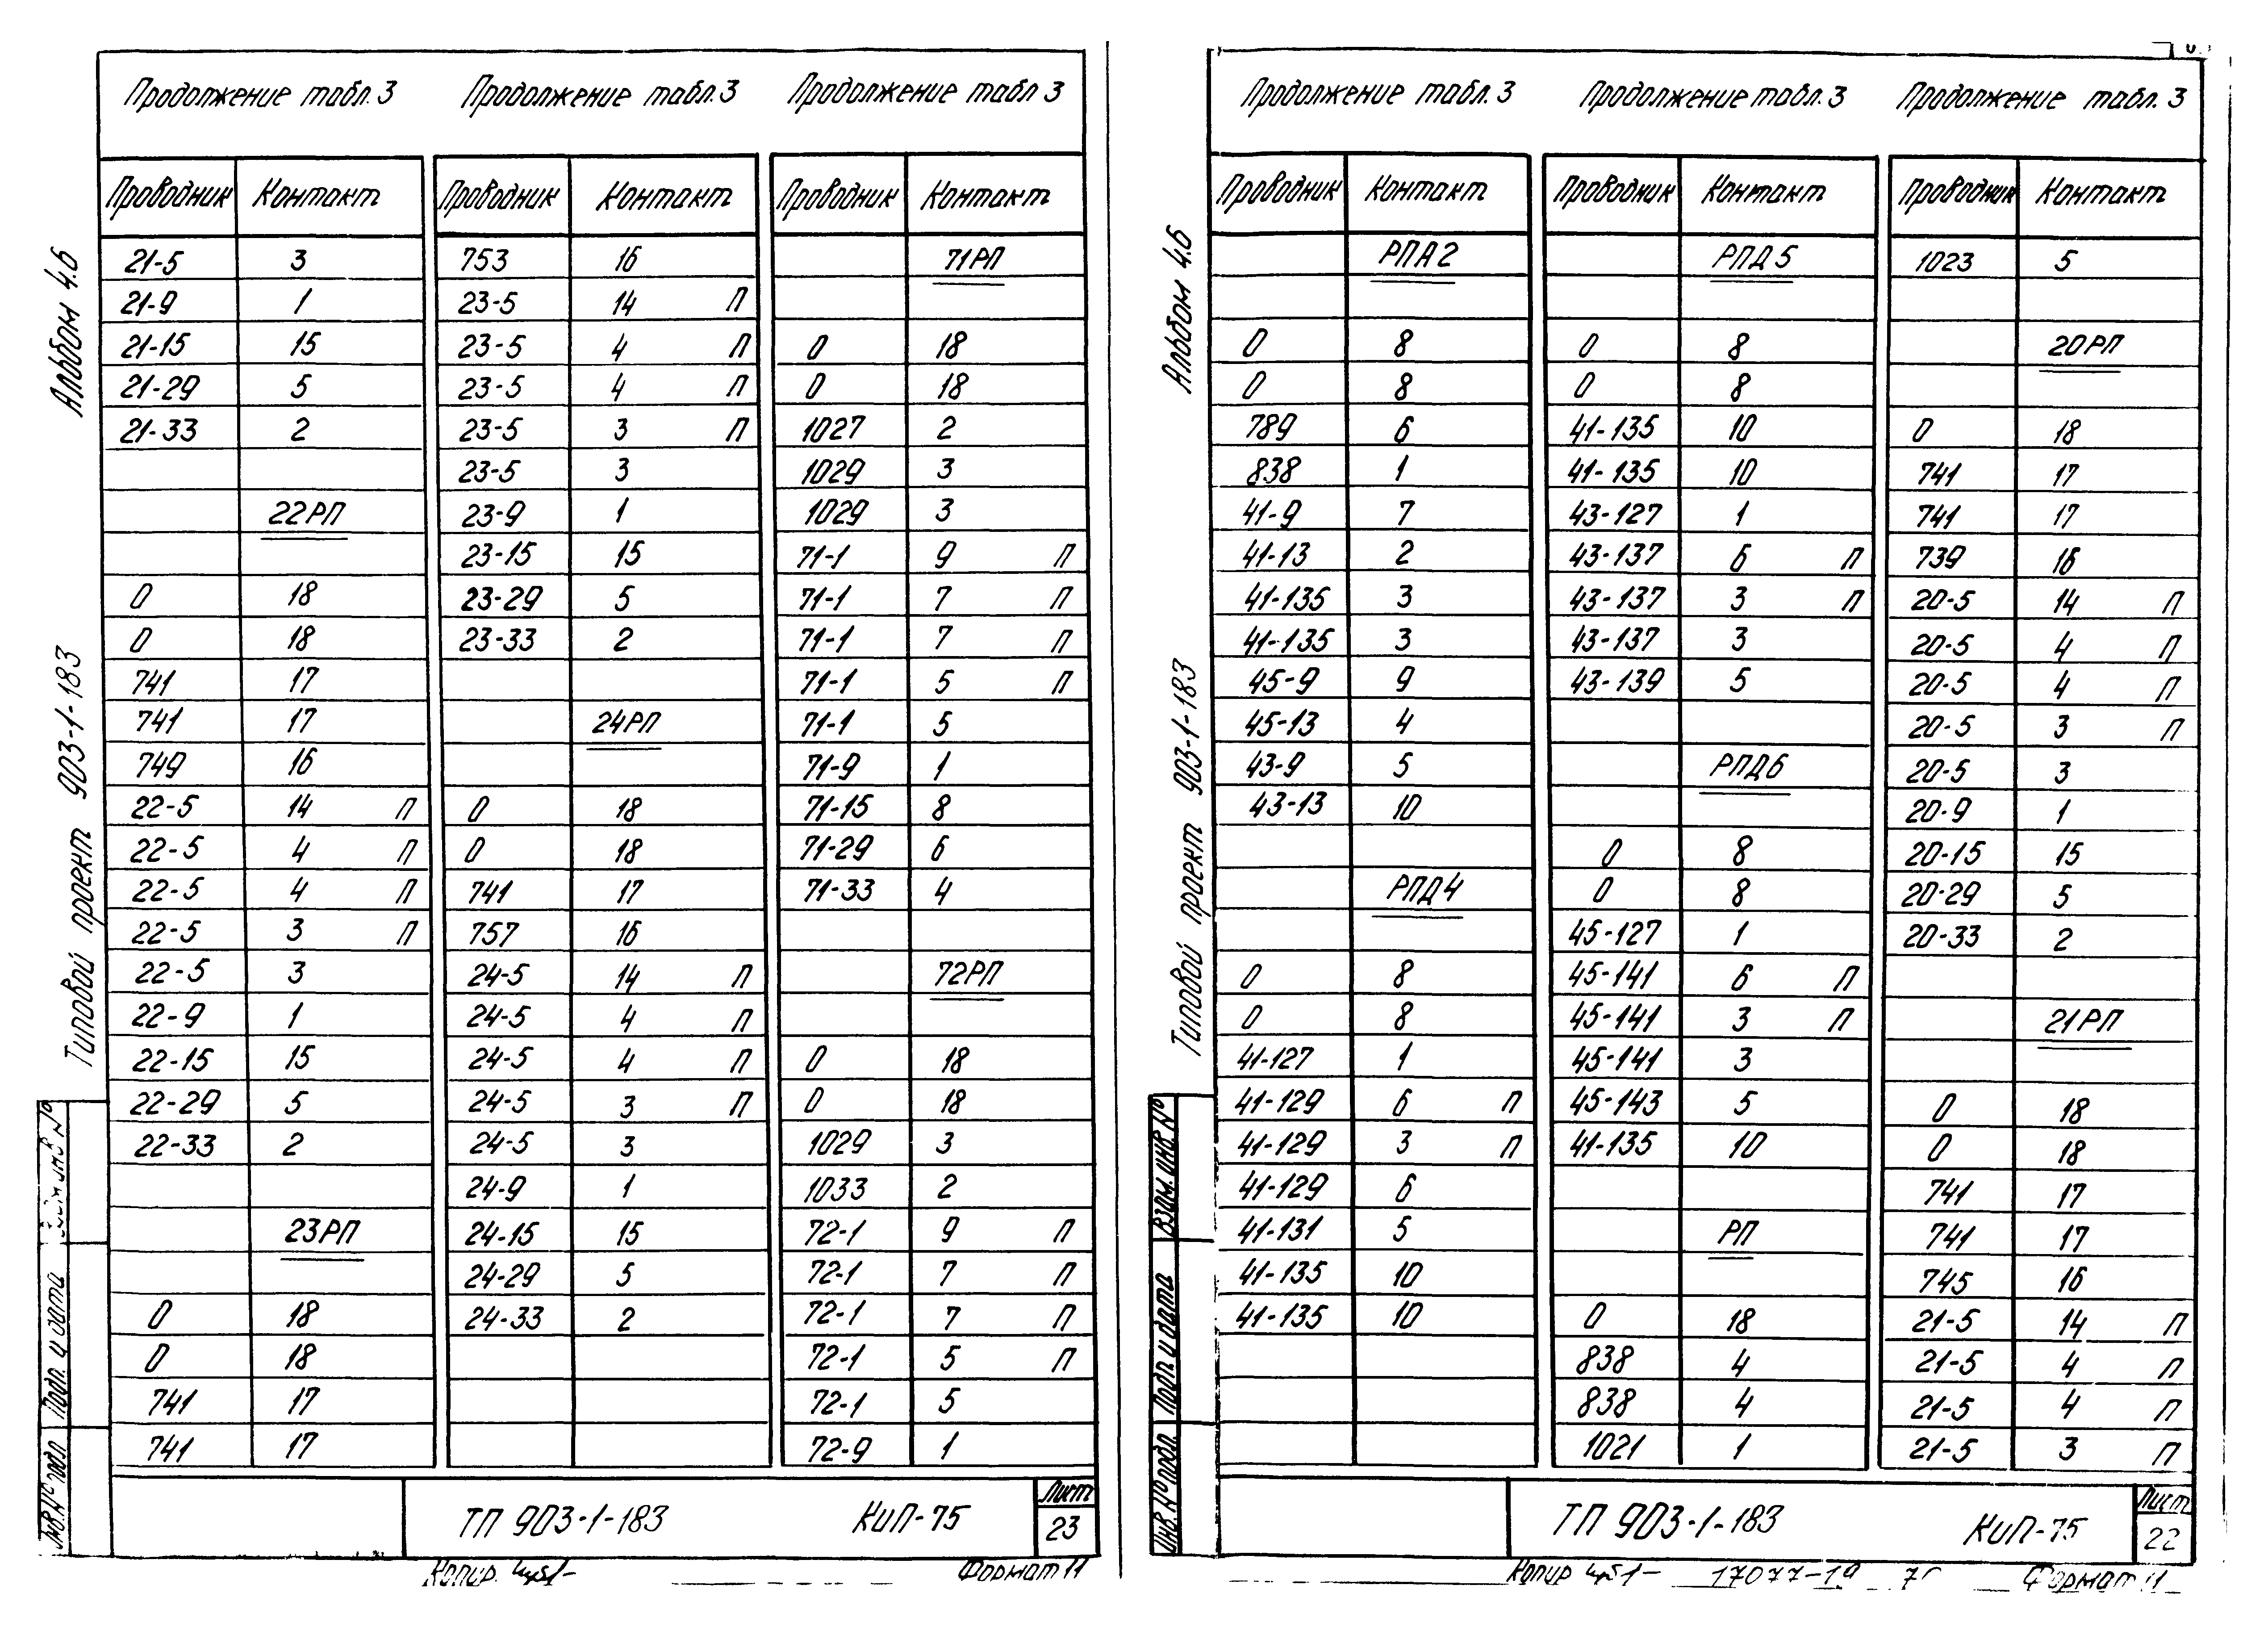 Альбом 4.6
Типовой проект 903-1-183
Продолжение табл.3
Проводник Контакт
21-5 3
21-9 1
21-15 15
21-29 5
21-33 2
22РП
0 18
0 18
741 17
741 17
749 16
22-5 14 П
22-5 4 П
22-5 4 П
22-5 3 П
22-5 3
22-9 1
22-15 15
22-29 5
22-33 2
23РП
0 18
0 18
741 17
741 17
Продолжение табл.3
Проводник Контакт
753 16
23-5 14 П
23-5 4 П
23-5 4 П
23-5 3 П
23-5 3
23-9 1
23-15 15
23-29 5
23-33 2
24РП
0 18
0 18
741 17
757 16
24-5 14 П
24-5 4 П
24-5 4 П
24-5 3 П
24-5 3
24-9 1
24-15 15
24-29 5
24-33 2
Продолжение табл 3
Проводник Контакт
71РП
0 18
0 18
1027 2
1029 3
1029 3
71-1 9 П
71-1 7 П
71-1 7 П
71-1 5 П
71-1 5
71-9 1
71-15 8
71-29 6
71-33 4
72РП
0 18
0 18
1029 3
1033 2
72-1 9 П
72-1 7 П
72-1 7 П
72-1 5 П
72-1 5
72-9 1
инв N°
Подп. и дата
Инв.N° подл.
ТП 903-1-183 КиП-75
Лист
23
Копир.
Формат 11
Альбом 4.6
Типовой проект 903-1-183
Продолжение табл.3
Проводник Контакт
РПА2
0 8
0 8
789 6
838 1
41-9 7
41-13 2
41-135 3
41-135 3
45-9 9
45-13 4
43-9 5
43-13 10
РПД4
0 8
0 8
41-127 1
41-129 6 П
41-129 3 П
41-129 6
41-131 5
41-135 10
41-135 10
Продолжение табл.3
Проводник Контакт
РПД5
0 8
0 8
41-135 10
41-135 10
43-127 1
43-137 6 П
43-137 3 П
43-137 3
43-139 5
РПД6
0 8
0 8
45-127 1
45-141 6 П
45-141 3 П
45-141 3
45-143 5
41-135 10
РП
0 18
838 4
838 4
1021 1
Продолжение табл. 3
Проводник Контакт
1023 5
20РП
0 18
741 17
741 17
739 16
20-5 14 П
20-5 4 П
20-5 4 П
20-5 3 П
20-5 3
20-9 1
20-15 15
20-29 5
20-33 2
21РП
0 18
0 18
741 17
741 17
745 16
21-5 14 П
21-5 4 П
21-5 4 П
21-5 3 П
Взам. инв. N°
Подп. и дата
Инв. N° подл.
ТП 903-1-183 КиП-75
Лист
22
Копир 17077-19
Формат 11